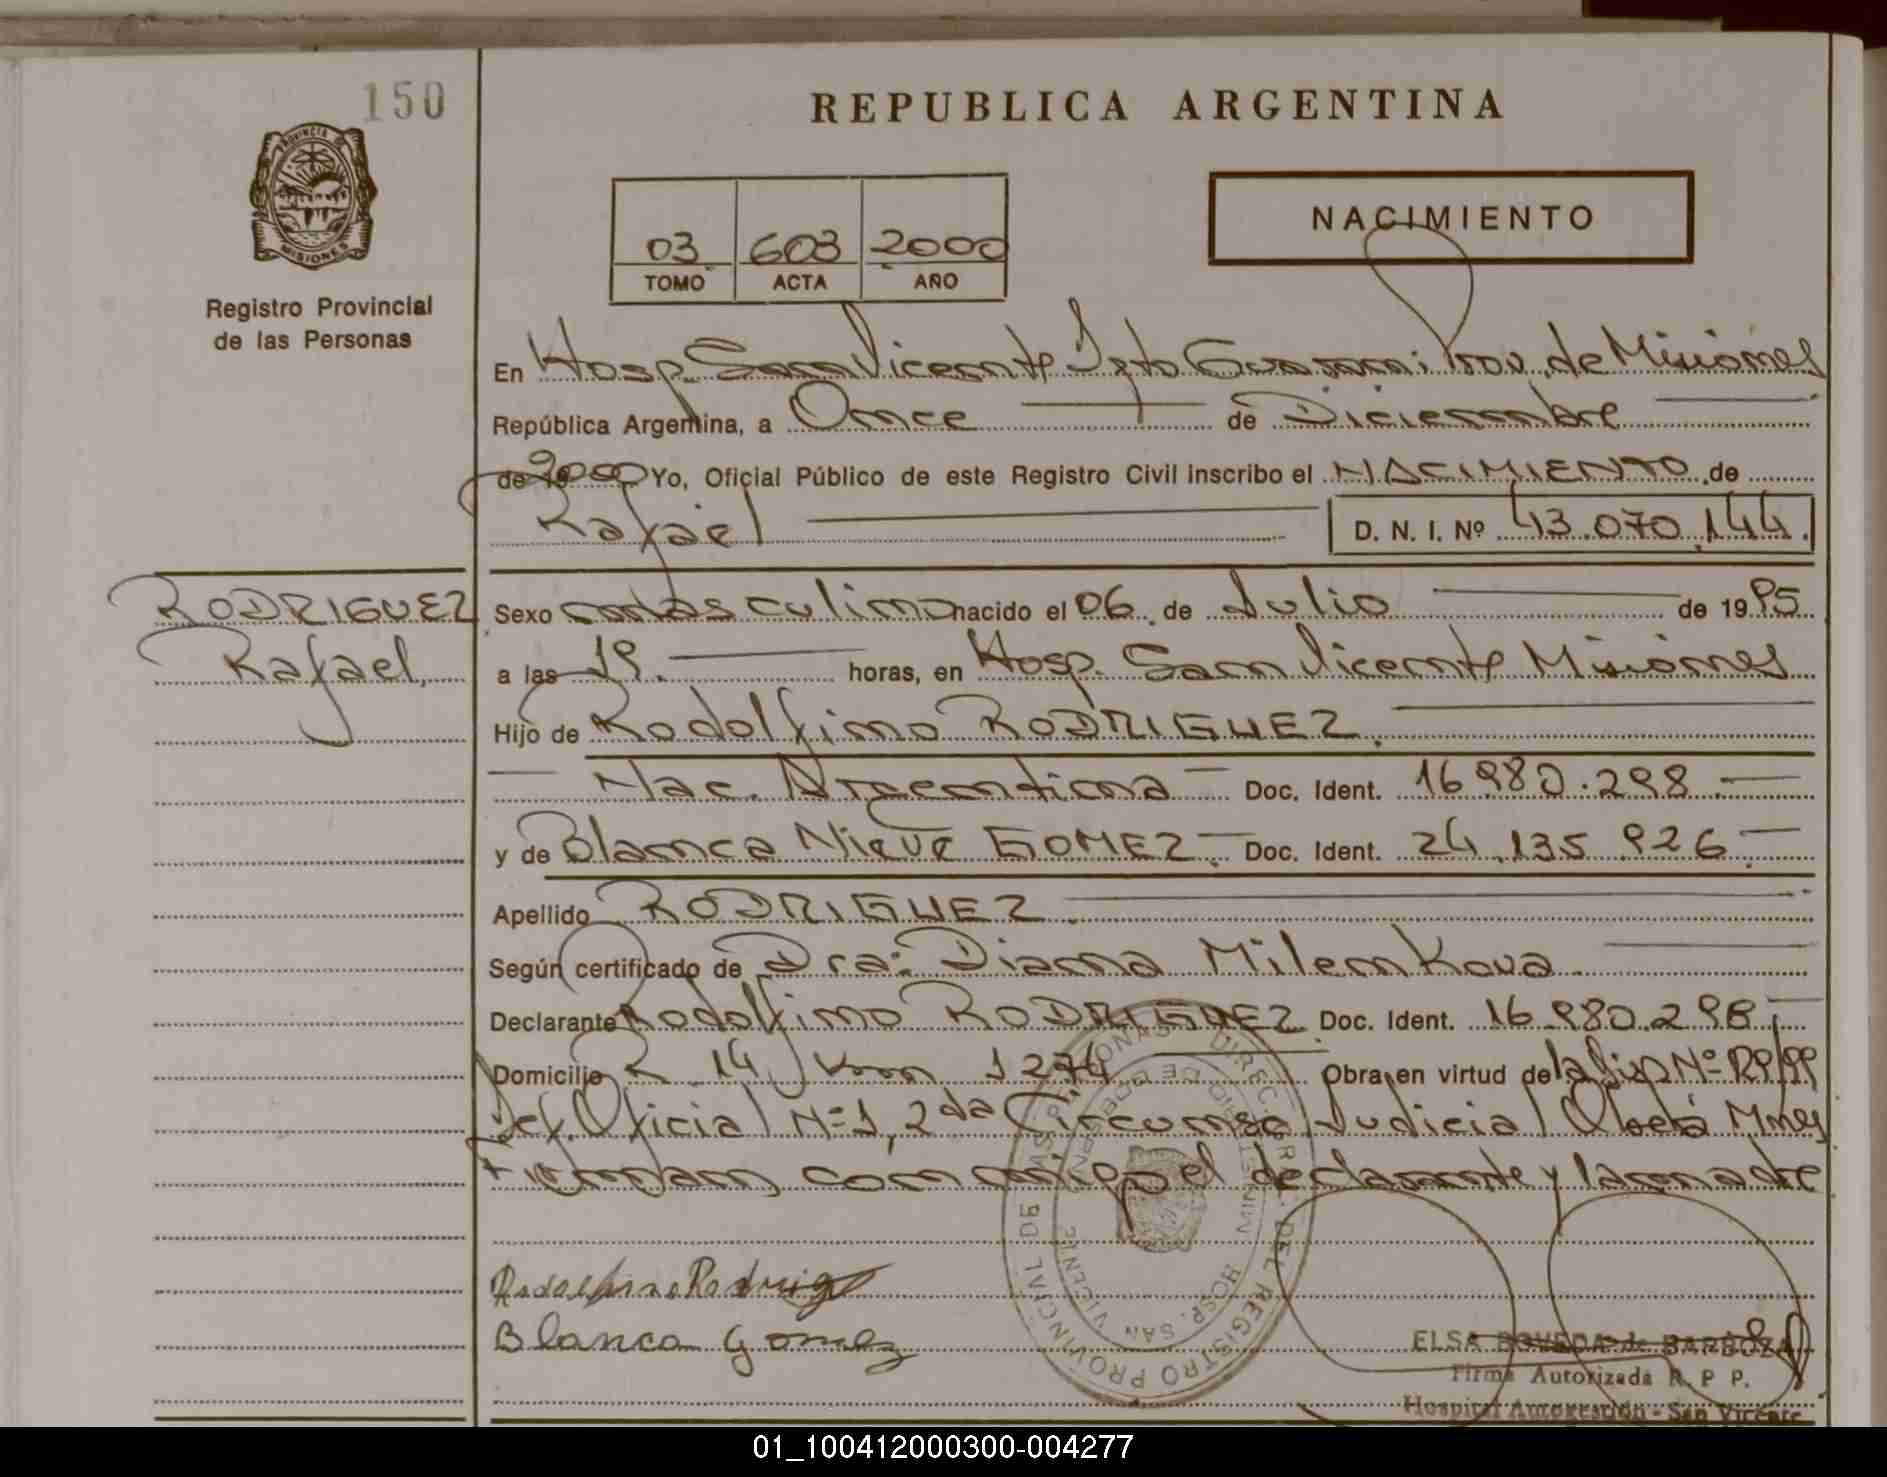 150
REPUBLICA ARGENTINA
PROVINCIA
MISIONES
Registro Provincial
de las Personas
03 603 2000
TOMO ACTA AÑO
NACIMIENTO
En Hosp. San Vicente Dpto Guarani Prov. de Misiones
República Argentina, a Once de Diciembre
de 2000 Yo, Oficial Público de este Registro Civil inscribo el NACIMIENTO de
Rafael D. N. I. Nº 43.070.144
RODRIGUEZ
Rafael
Sexo masculino nacido el 06 de Julio de 1995
a las 19. horas, en Hosp. San Vicente Misiones
Hijo de Rodolfino RODRIGUEZ.
Nac. Argentina Doc. Ident. 16.980.298
y de Blanca Nieve GOMEZ. Doc. Ident. 24.135.926
Apellido RODRIGUEZ.
Según certificado de Dra: Diana Milenkova
Declarante Rodolfino RODRIGUEZ Doc. Ident. 16.980.298
Domicilio R. 14 Km 1274 Obra en virtud de la
Def. Oficial Nº 1, 2da Circunsc Judicial Oberá Mnes
Firman conmigo el declarante y la madre
Rodolfino Rodrigz
Blanca Gomez
DIREC. PROVINCIAL DEL REGISTRO PROVINCIAL DE LAS PERSONAS
MINISTERIO DE GOBIERNO
HOSP. SAN VICENTE
ELSA BOVEDA de BARBOZA
Firma Autorizada R. P. P.
Hospital Autogestión - San Vicente
01_100412000300-004277